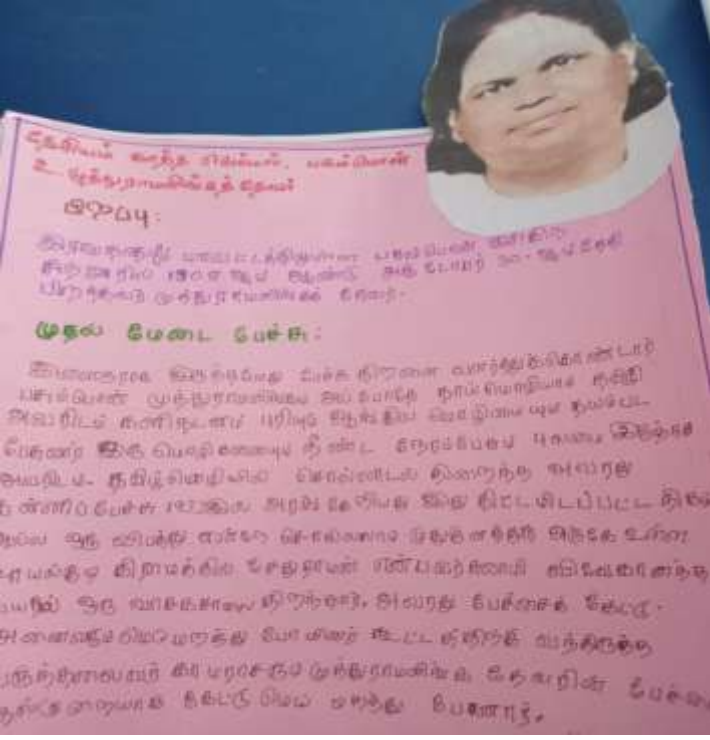 தேசியம் காத்த செம்மல், பசும்பொன்
உ முத்துராமலிங்கத் தேவர்
பிறப்பு:
இராமநாதபுர மாவட்டத்திலுள்ள பசும்பொன் என்கிற
சிற்றூரில் 1908 ஆம் ஆண்டு அக்டோபர் 30-ஆம் தேதி
பிறந்தவர் முத்துராமலிங்கத் தேவர்.
முதல் மேடை பேச்சு:
இளைஞராக இருந்தபோது பேச்சு திறனை வளர்த்துக்கொண்டார்
பசும்பொன் முத்துராமலிங்கம் அப்போதே தாய்மொழியாம் தமிழ்
அவரிடம் களிநடனம் புரியும் ஆங்கில மொழியையும்
இரு மொழிகளையும் நீண்ட நேரம்பேசும் புலமை இருந்தது
அவரிடம். தமிழ்மொழியில் சொல்லாடல் நிறைந்த அவரது
கன்னிப்பேச்சு அரங்கேறியது இது திட்டமிடப்பட்ட
அல்ல ஒரு விபத்து என்றே சொல்லலாம் முதுகுளத்தூர் அருகே உள்ள
சாயல்குடி கிராமத்தில் சேதுராமன் என்பவர்
பெயரில் ஒரு வாசகசாலை திறந்தார். அவரது பேச்சைக் கேட்டு.
அனைவரும் மெய்மறந்து போயினர் கூட்டத்திற்கு வந்திருந்த
பெருந்தலைவர் காமராசரும் முத்துராமலிங்க தேவரின் பேச்சை
கேட்டு மெய் மறந்து போனார்.